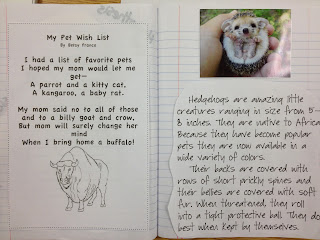 My Pet Wish List
By Betsy Franco
I had a list of favorite pets
I hoped my mom would let me
get—
A parrot and a kitty cat,
A kangaroo, a baby rat.
My mom said no to all of those
and to a billy goat and crow,
But mom will surely change her
mind
When I bring home a buffalo!
Hedgehogs are amazing little
creatures ranging in size from 5-
8 inches. They are native to Africa.
Because they have become popular
pets they are now available in a
wide variety of colors.
Their backs are covered with
rows of short prickly spines and
their bellies are covered with soft
fur. When threatened, they roll
into a tight protective ball. They do
best when kept by themselves.